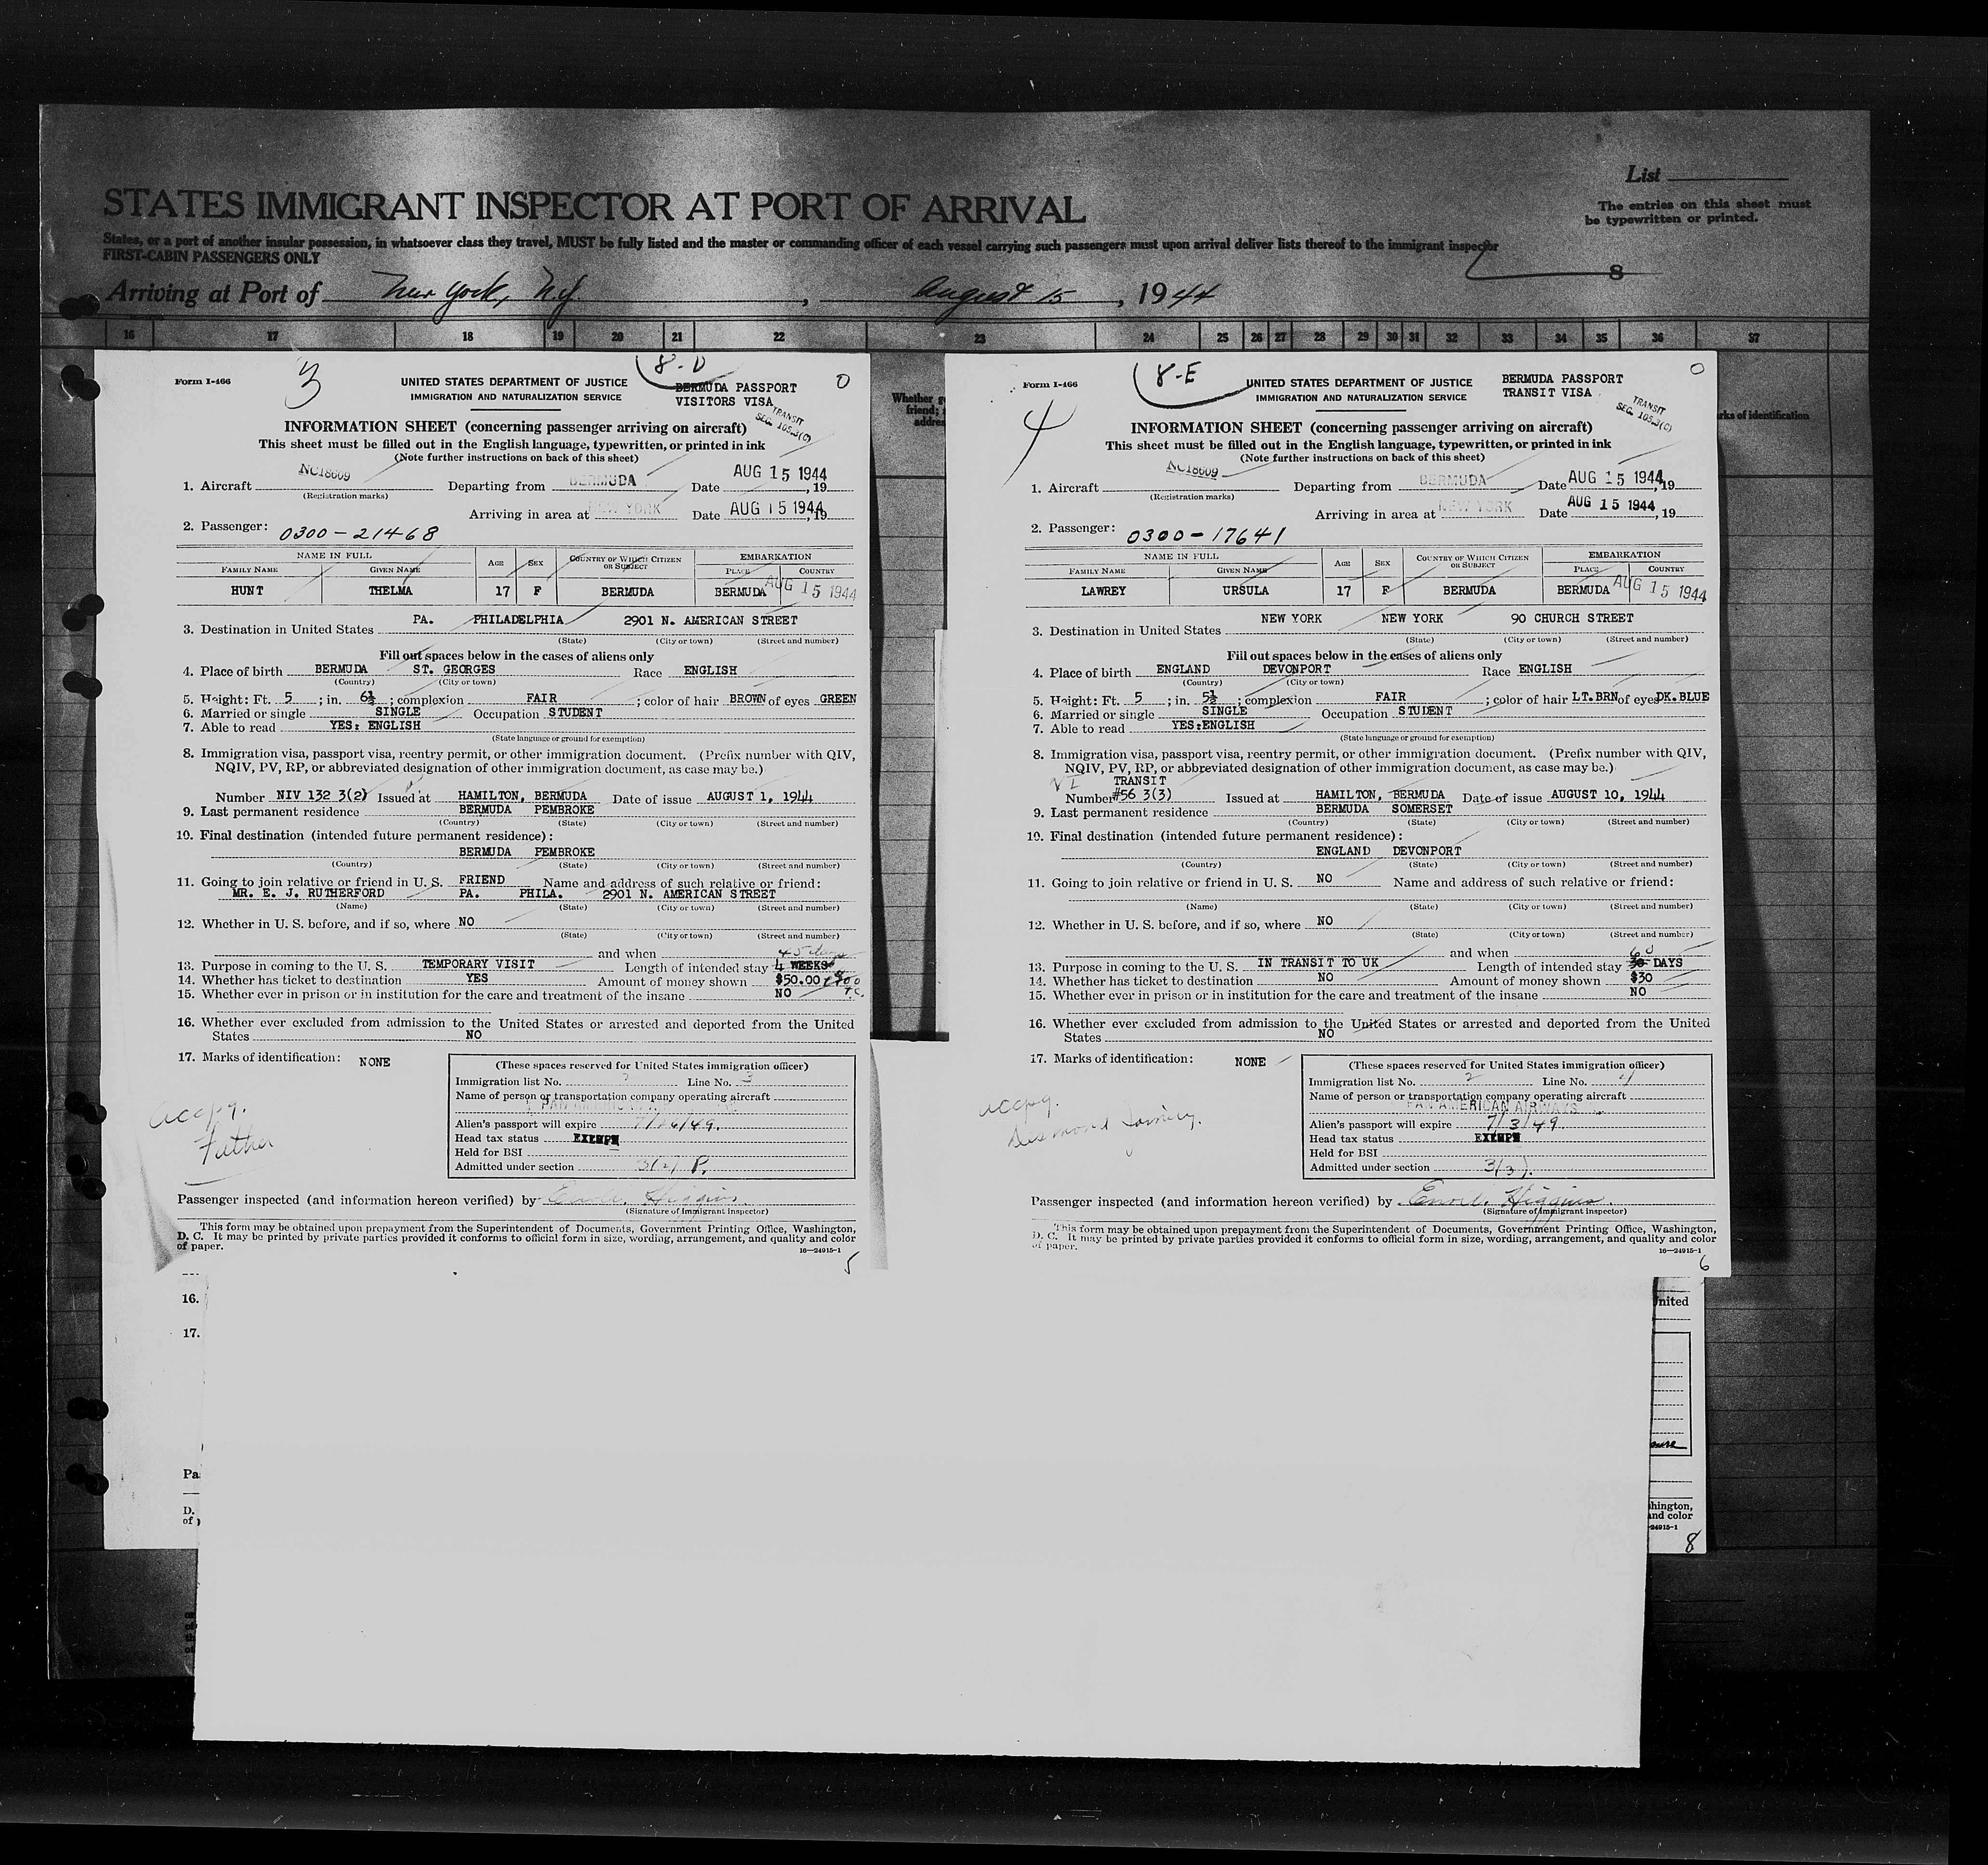 STATES IMMIGRANT INSPECTOR AT PORT OF ARRIVAL
List
The entries on this sheet must
be typewritten or printed.
States, or a port of another insular possession, in whatsoever class they travel, MUST be fully listed and the master or commanding officer of each vessel carrying such passengers must upon arrival deliver lists thereof to the immigrant inspector
FIRST-CABIN PASSENGERS ONLY
8
Arriving at Port of New York, N.Y. , August 15 , 1944
16 17 18 19 20 21 22 23 24 25 26 27 28 29 30 31 32 33 34 35 36 37
Form I-466
3
8-D
0
UNITED STATES DEPARTMENT OF JUSTICE
IMMIGRATION AND NATURALIZATION SERVICE
BERMUDA PASSPORT
VISITORS VISA
TRANSIT
SEC. 105.3(C)
INFORMATION SHEET (concerning passenger arriving on aircraft)
This sheet must be filled out in the English language, typewritten, or printed in ink
(Note further instructions on back of this sheet)
1. Aircraft NC18609 Departing from BERMUDA Date AUG 15 1944, 19
(Registration marks)
Arriving in area at NEW YORK Date AUG 15 1944, 19
2. Passenger: 0300-21468
NAME IN FULL AGE SEX COUNTRY OF WHICH CITIZEN OR SUBJECT EMBARKATION
FAMILY NAME GIVEN NAME PLACE COUNTRY
HUNT THELMA 17 F BERMUDA BERMUDA AUG 15 1944
3. Destination in United States PA. PHILADELPHIA 2901 N. AMERICAN STREET
(State) (City or town) (Street and number)
Fill out spaces below in the cases of aliens only
4. Place of birth BERMUDA ST. GEORGES Race ENGLISH
(Country) (City or town)
5. Height: Ft. 5 ; in. 6½ ; complexion FAIR ; color of hair BROWN of eyes GREEN
6. Married or single SINGLE Occupation STUDENT
7. Able to read YES: ENGLISH
(State language or ground for exemption)
8. Immigration visa, passport visa, reentry permit, or other immigration document. (Prefix number with QIV,
NQIV, PV, RP, or abbreviated designation of other immigration document, as case may be.)
Number NIV 132 3(2) Issued at HAMILTON, BERMUDA Date of issue AUGUST 1, 1944
9. Last permanent residence BERMUDA PEMBROKE
(Country) (State) (City or town) (Street and number)
10. Final destination (intended future permanent residence):
BERMUDA PEMBROKE
(Country) (State) (City or town) (Street and number)
11. Going to join relative or friend in U. S. FRIEND Name and address of such relative or friend:
MR. E. J. RUTHERFORD PA. PHILA. 2901 N. AMERICAN STREET
(Name) (State) (City or town) (Street and number)
12. Whether in U. S. before, and if so, where NO
(State) (City or town) (Street and number)
and when
45 days
13. Purpose in coming to the U. S. TEMPORARY VISIT Length of intended stay 4 WEEKS
14. Whether has ticket to destination YES Amount of money shown $50.00
15. Whether ever in prison or in institution for the care and treatment of the insane NO T.C.
16. Whether ever excluded from admission to the United States or arrested and deported from the United
States NO
17. Marks of identification: NONE
(These spaces reserved for United States immigration officer)
Immigration list No. 2 Line No. 3
Name of person or transportation company operating aircraft
PAN AMERICAN
Alien's passport will expire 7/26/49.
Head tax status EXEMPT
Held for BSI
Admitted under section 3(2) P.
accpg.
Father
Passenger inspected (and information hereon verified) by Higgins
(Signature of immigrant inspector)
This form may be obtained upon prepayment from the Superintendent of Documents, Government Printing Office, Washington,
D. C. It may be printed by private parties provided it conforms to official form in size, wording, arrangement, and quality and color
of paper.
16—24915-1
5
Whether g
friend;
addres
Form I-466
4
8-E
0
UNITED STATES DEPARTMENT OF JUSTICE
IMMIGRATION AND NATURALIZATION SERVICE
BERMUDA PASSPORT
TRANSIT VISA
TRANSIT
SEC. 105.3(C)
INFORMATION SHEET (concerning passenger arriving on aircraft)
This sheet must be filled out in the English language, typewritten, or printed in ink
(Note further instructions on back of this sheet)
1. Aircraft NC18609 Departing from BERMUDA Date AUG 15 1944, 19
(Registration marks)
Arriving in area at NEW YORK Date AUG 15 1944, 19
2. Passenger: 0300-17641
NAME IN FULL AGE SEX COUNTRY OF WHICH CITIZEN OR SUBJECT EMBARKATION
FAMILY NAME GIVEN NAME PLACE COUNTRY
LAWREY URSULA 17 F BERMUDA BERMUDA AUG 15 1944
3. Destination in United States NEW YORK NEW YORK 90 CHURCH STREET
(State) (City or town) (Street and number)
Fill out spaces below in the cases of aliens only
4. Place of birth ENGLAND DEVONPORT Race ENGLISH
(Country) (City or town)
5. Height: Ft. 5 ; in. 5½ ; complexion FAIR ; color of hair LT.BRN of eyes DK.BLUE
6. Married or single SINGLE Occupation STUDENT
7. Able to read YES:ENGLISH
(State language or ground for exemption)
8. Immigration visa, passport visa, reentry permit, or other immigration document. (Prefix number with QIV,
NQIV, PV, RP, or abbreviated designation of other immigration document, as case may be.)
TRANSIT
Number #56 3(3) Issued at HAMILTON, BERMUDA Date of issue AUGUST 10, 1944
9. Last permanent residence BERMUDA SOMERSET
(Country) (State) (City or town) (Street and number)
10. Final destination (intended future permanent residence):
ENGLAND DEVONPORT
(Country) (State) (City or town) (Street and number)
11. Going to join relative or friend in U. S. NO Name and address of such relative or friend:
(Name) (State) (City or town) (Street and number)
12. Whether in U. S. before, and if so, where NO
(State) (City or town) (Street and number)
and when
60
13. Purpose in coming to the U. S. IN TRANSIT TO UK Length of intended stay 30 DAYS
14. Whether has ticket to destination NO Amount of money shown $30
15. Whether ever in prison or in institution for the care and treatment of the insane NO
16. Whether ever excluded from admission to the United States or arrested and deported from the United
States NO
17. Marks of identification: NONE
(These spaces reserved for United States immigration officer)
Immigration list No. 2 Line No. 4
Name of person or transportation company operating aircraft
PAN AMERICAN AIRWAYS
Alien's passport will expire 7/3/49
Head tax status EXEMPT
Held for BSI
Admitted under section 3(3).
accpg.
Desmond
Passenger inspected (and information hereon verified) by Higgins
(Signature of immigrant inspector)
This form may be obtained upon prepayment from the Superintendent of Documents, Government Printing Office, Washington,
D. C. It may be printed by private parties provided it conforms to official form in size, wording, arrangement, and quality and color
of paper.
16—24915-1
6
rks of identification
16.
17.
Pa
D.
of
nited
hington,
and color
24915-1
8